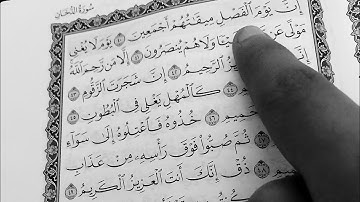 سُورَةُ الدُّخَانِ
إِنَّ يَوْمَ ٱلْفَصْلِ مِيقَٰتُهُمْ أَجْمَعِينَ ٤٠ يَوْمَ لَا يُغْنِى
مَوْلًى عَن شَيْـًٔا وَلَا هُمْ يُنصَرُونَ ٤١ إِلَّا مَن رَّحِمَ ٱللَّهُ
ٱلرَّحِيمُ ٤٢ إِنَّ شَجَرَتَ ٱلزَّقُّومِ ٤٣
كَٱلْمُهْلِ يَغْلِى فِى ٱلْبُطُونِ ٤٥
ٱلْحَمِيمِ ٤٦ خُذُوهُ فَٱعْتِلُوهُ إِلَىٰ سَوَآءِ
ثُمَّ صُبُّوا۟ فَوْقَ رَأْسِهِۦ مِنْ عَذَابِ
ذُقْ إِنَّكَ أَنتَ ٱلْعَزِيزُ ٱلْكَرِيمُ ٤٩